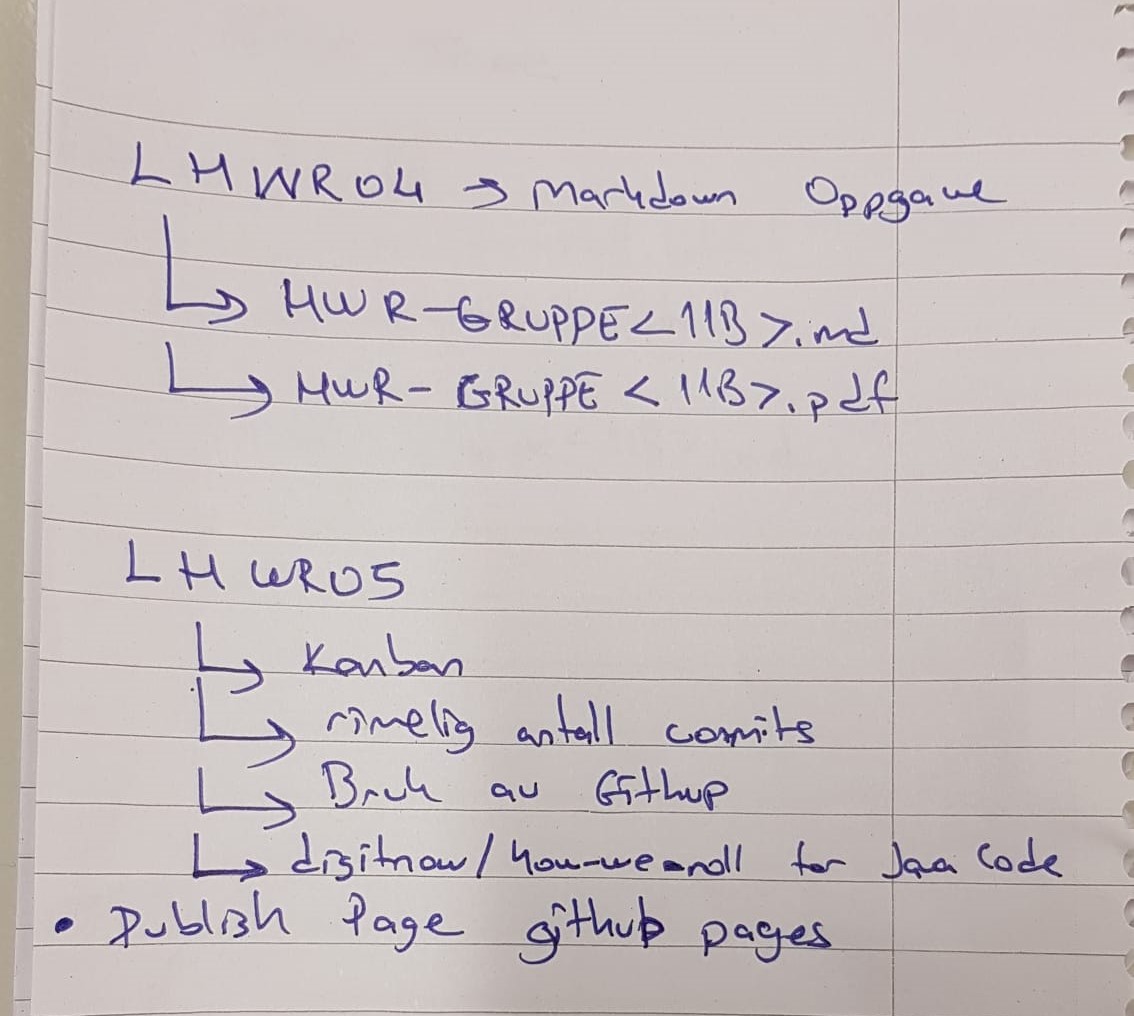 LHWR04 → Markdown Oppgave
↳ HWR-GRUPPE<11B>.md
↳ HWR-GRUPPE<11B>.pdf
LHWR05
↳ Kanban
↳ rimelig antall commits
↳ Bruk av Githup
↳ digitnow/how-we-roll for Jaa Code
• Publish Page github pages